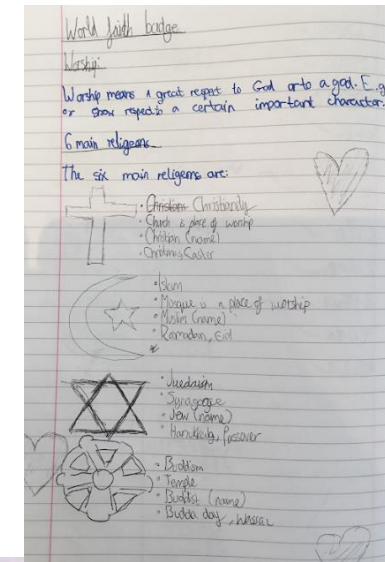 World faith badge
Worship:
Worship means a great respect to God or to a god. E.g
or show respect to a certain important character.
6 main religeons
The six main religems are:
• Christian Christiandy
• Church is place of worship
• Christian (name)
• Christmas, Easter
• Islam
• Mosque is a place of worship
• Muslim (name)
• Ramadan, Eid
• Juedaism
• Synagogue
• Jew (name)
• Hanukkug, Passover
• Buddism
• Temple
• Buddist (name)
• Budda day, Wassac